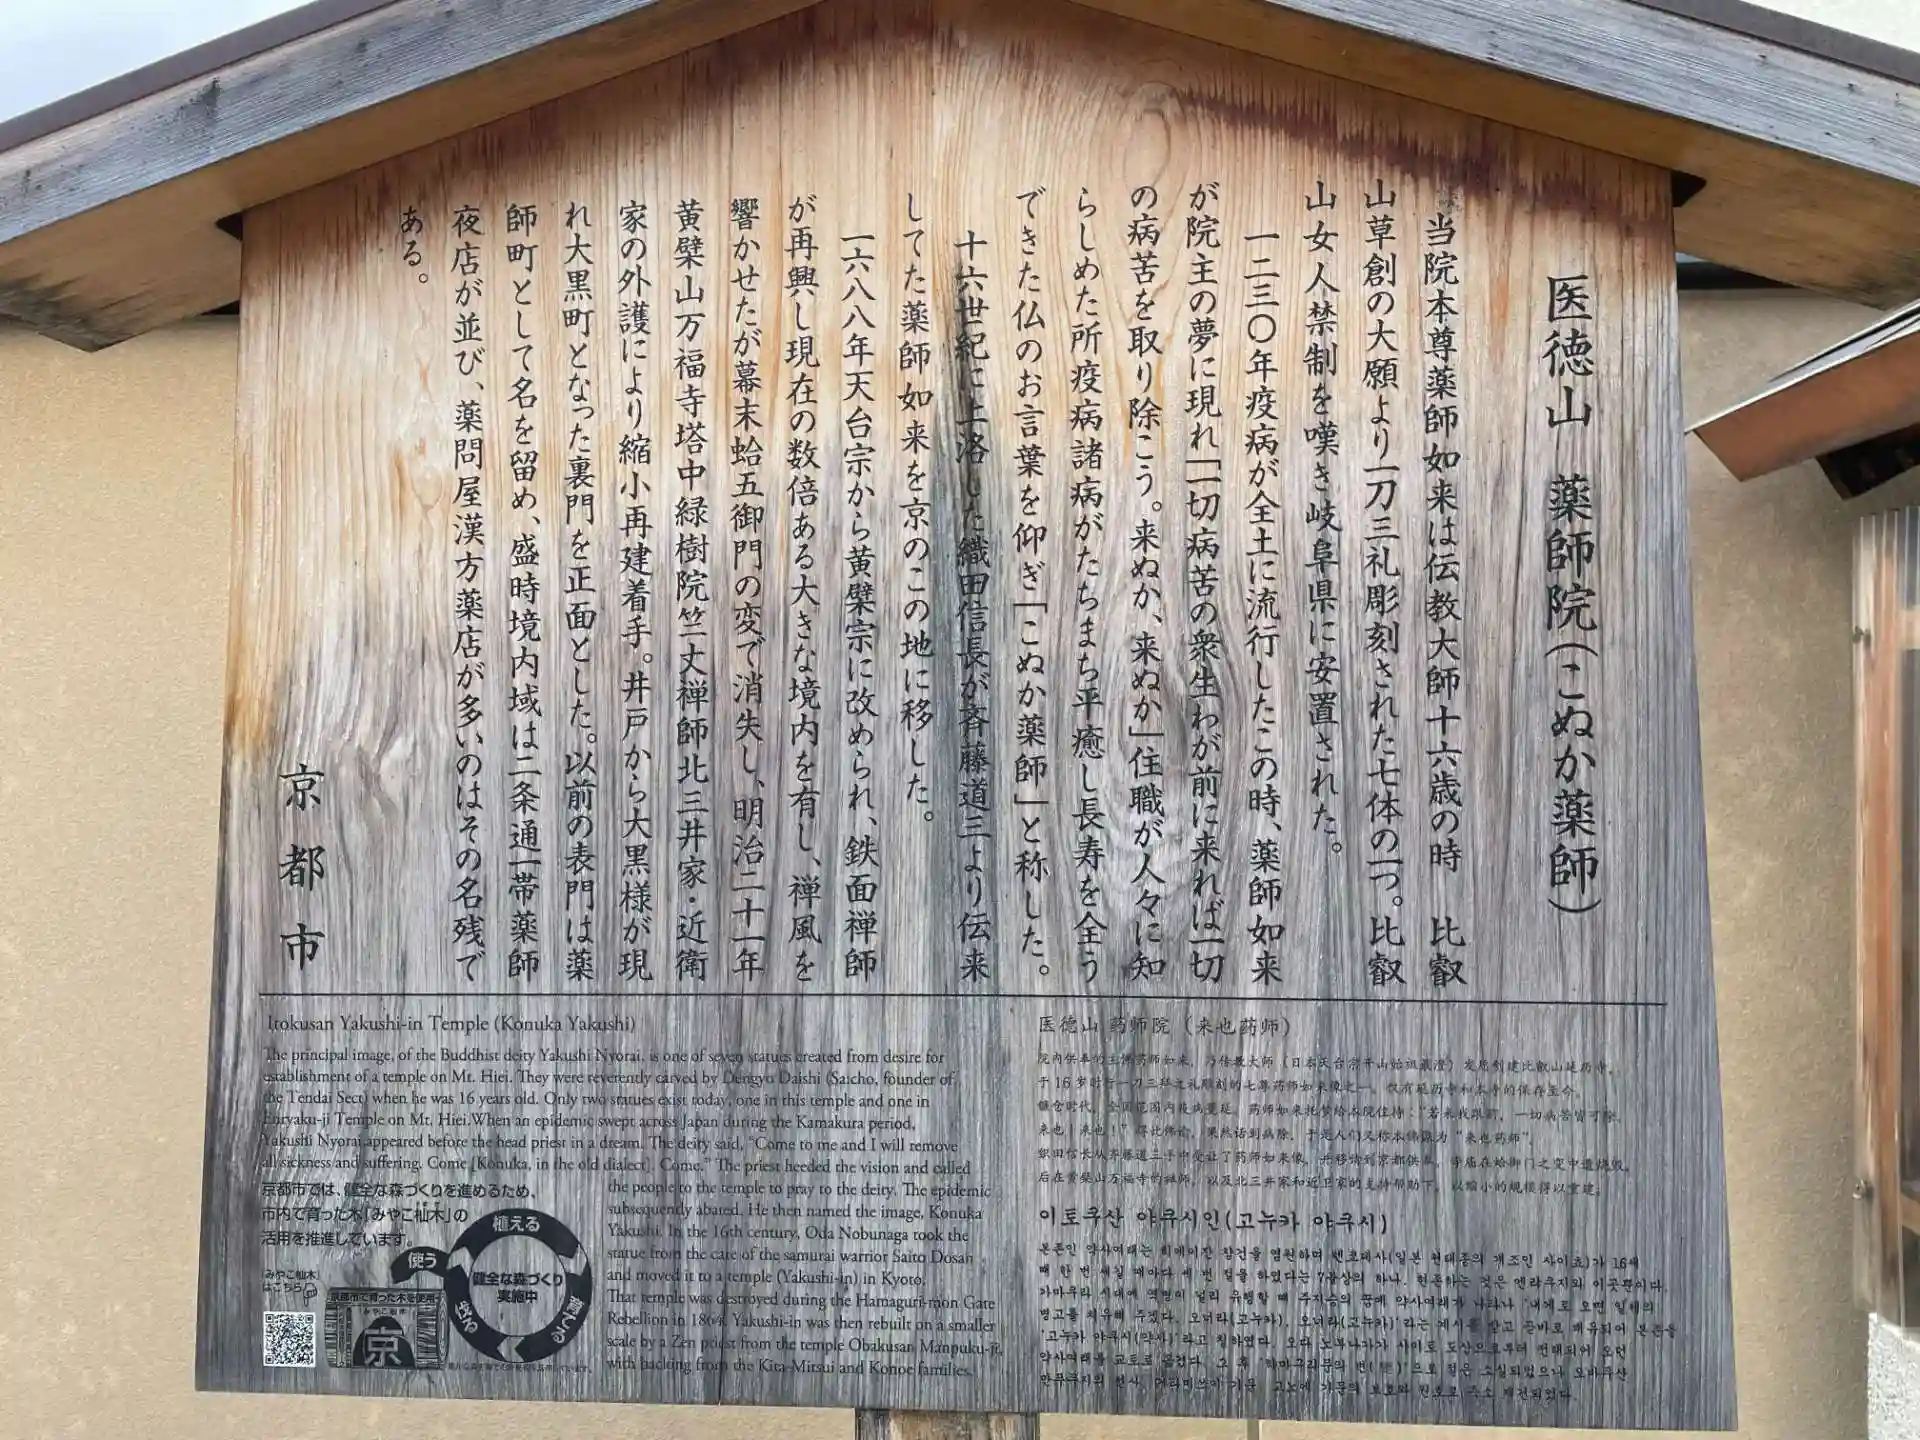 医徳山 薬師院(こぬか薬師)
当院本尊薬師如来は伝教大師十六歳の時 比叡
山草創の大願より一刀三礼彫刻された七体の一つ。比叡
山女人禁制を嘆き岐阜県に安置された。
一二三〇年疫病が全土に流行したこの時、薬師如来
が院主の夢に現れ「一切病苦の衆生わが前に来れば一切
の病苦を取り除こう。来ぬか、来ぬか」住職が人々に知
らしめた所疫病諸病がたちまち平癒し長寿を全う
できた仏のお言葉を仰ぎ「こぬか薬師」と称した。
十六世紀に上洛した織田信長が斉藤道三より伝来
してた薬師如来を京のこの地に移した。
一六八八年天台宗から黄檗宗に改められ、鉄面禅師
が再興し現在の数倍ある大きな境内を有し、禅風を
響かせたが幕末蛤五御門の変で消失し、明治二十一年
黄檗山万福寺塔中緑樹院竺丈禅師北三井家・近衛
家の外護により縮小再建着手。井戸から大黒様が現
れ大黒町となった裏門を正面とした。以前の表門は薬
師町として名を留め、盛時境内域は二条通一帯薬師
夜店が並び、薬問屋漢方薬店が多いのはその名残で
ある。
京都市
Itokusan Yakushi-in Temple (Konuka Yakushi)
The principal image, of the Buddhist deity Yakushi Nyorai, is one of seven statues created from desire for
establishment of a temple on Mt. Hiei. They were reverently carved by Dengyo Daishi (Saicho, founder of
the Tendai Sect) when he was 16 years old. Only two statues exist today, one in this temple and one in
Enryaku-ji Temple on Mt. Hiei.When an epidemic swept across Japan during the Kamakura period,
Yakushi Nyorai appeared before the head priest in a dream. The deity said, "Come to me and I will remove
all sickness and suffering. Come [Konuka, in the old dialect]. Come." The priest heeded the vision and called
the people to the temple to pray to the deity. The epidemic
subsequently abated. He then named the image, Konuka
Yakushi. In the 16th century, Oda Nobunaga took the
statue from the care of the samurai warrior Saito Dosan
and moved it to a temple (Yakushi-in) in Kyoto.
That temple was destroyed during the Hamaguri-mon Gate
Rebellion in 1864. Yakushi-in was then rebuilt on a smaller
scale by a Zen priest from the temple Obakusan Manpuku-ji,
with backing from the Kita-Mitsui and Konoe families.
京都市では、健全な森づくりを進めるため、
市内で育った木「みやこ杣木」の
活用を推進しています。
「みやこ杣木」
はこちら
京都市で育った木を使用
みやこ杣木
京
植える
育てる
伐る
使う
健全な森づくり
実施中
医徳山 药师院（来也药师）
院内供奉的主佛药师如来，乃传教大师（日本天台宗开山始祖最澄）发愿创建比叡山延历寺，
于16岁时行一刀三拜之礼雕刻的七尊药师如来像之一。仅有延历寺和本寺的保存至今。
镰仓时代，全国范围内疫病蔓延，药师如来托梦给本院住持：“若来我跟前，一切病苦皆可除。
来也！来也！”得此佛谕，果然话到病除，于是人们又称本佛像为“来也药师”。
织田信长从斉藤道三手中受让了药师如来像，并移请到京都供奉，寺庙在蛤御门之变中遭烧毁，
后在黄檗山万福寺的禅师，以及北三井家和近卫家的支持帮助下，以缩小的规模得以重建。
이토쿠산 야쿠시인(고누카 야쿠시)
본존인 약사여래는 히에이잔 창건을 염원하며 덴교대사(일본 천태종의 개조인 사이쵸)가 16세
때 한 번 새길 때마다 세 번 절을 하였다는 7불상의 하나. 현존하는 것은 엔랴쿠지와 이곳뿐이다.
가마쿠라 시대에 역병이 널리 유행할 때 주지승의 꿈에 약사여래가 나타나 '내게로 오면 일체의
병고를 치유해 주겠다. 오너라(고누카), 오너라(고누카)'라는 계시를 받고 곧바로 쾌유되어 본존을
'고누카 야쿠시(약사)'라고 칭하였다. 오다 노부나가가 사이토 도산으로부터 전래되어 오던
약사여래를 교토로 옮겼다. 그 후 '하마구리문의 변(変)'으로 절은 소실되었으나 오바쿠산